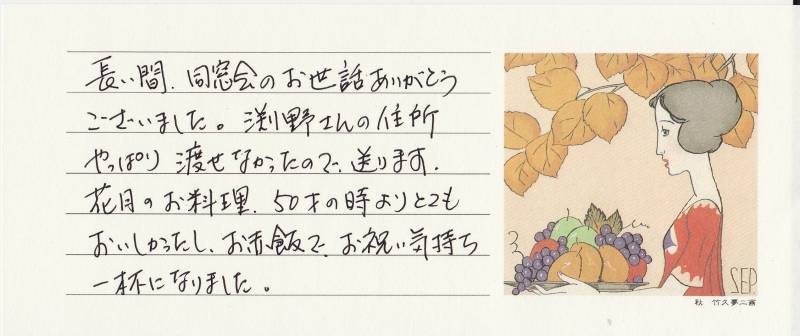 長い間、同窓会のお世話ありがとう
ございました。渕野さんの住所
やっぱり渡せなかったので、送ります.
花月のお料理、50才の時よりとても
おいしかったし、お赤飯で、お祝い気持ち
一杯になりました。
SEP
秋 竹久夢二画